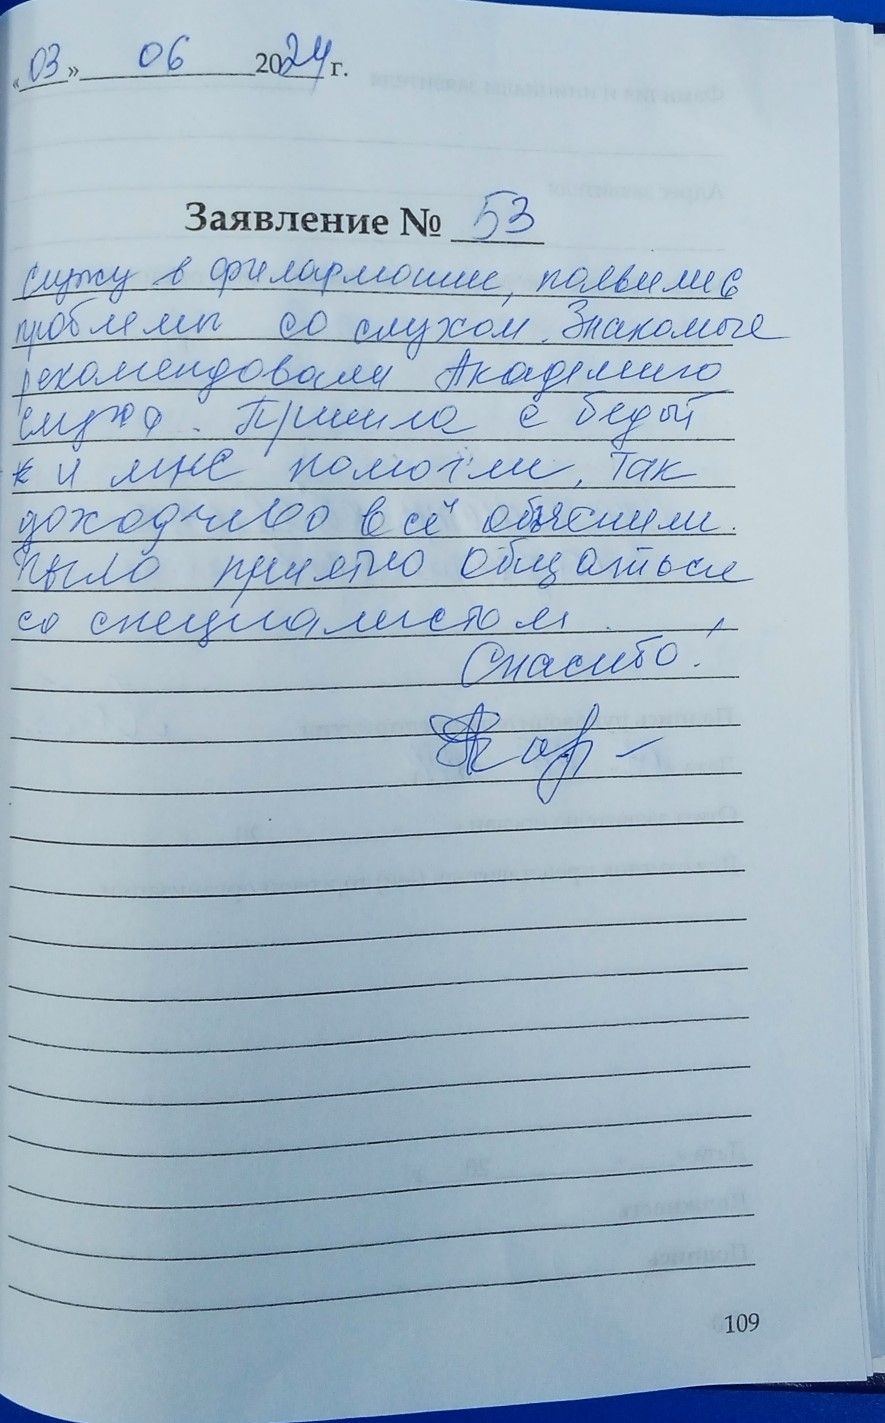 «03» 06 2024 г.
Заявление № 53
Служу в филармонии, появились
проблемы со слухом. Знакомые
рекомендовали Академию
слуха. Пришла с бедой
и мне помогли, так
доходчиво всё объяснили.
Было приятно общаться
со специалистом.
Спасибо!
109